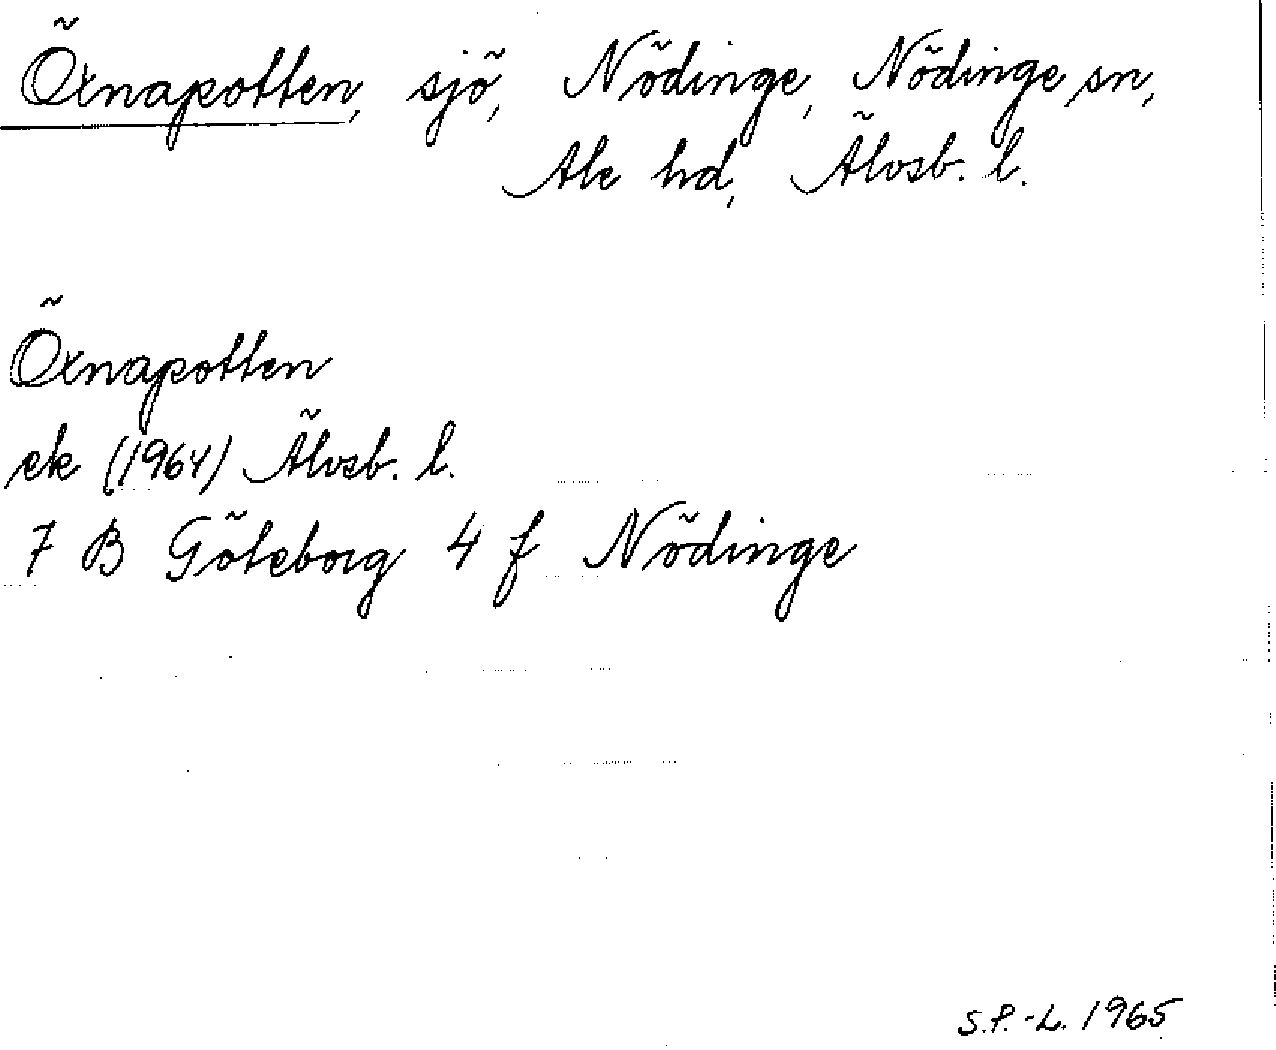 Öxnapotten, sjö, Nödinge, Nödinge sn,
Ale hd, Älvsb. l.
Öxnapotten
ek (1964) Älvsb. l.
7 B Göteborg 4 f Nödinge
S.P.-L. 1965